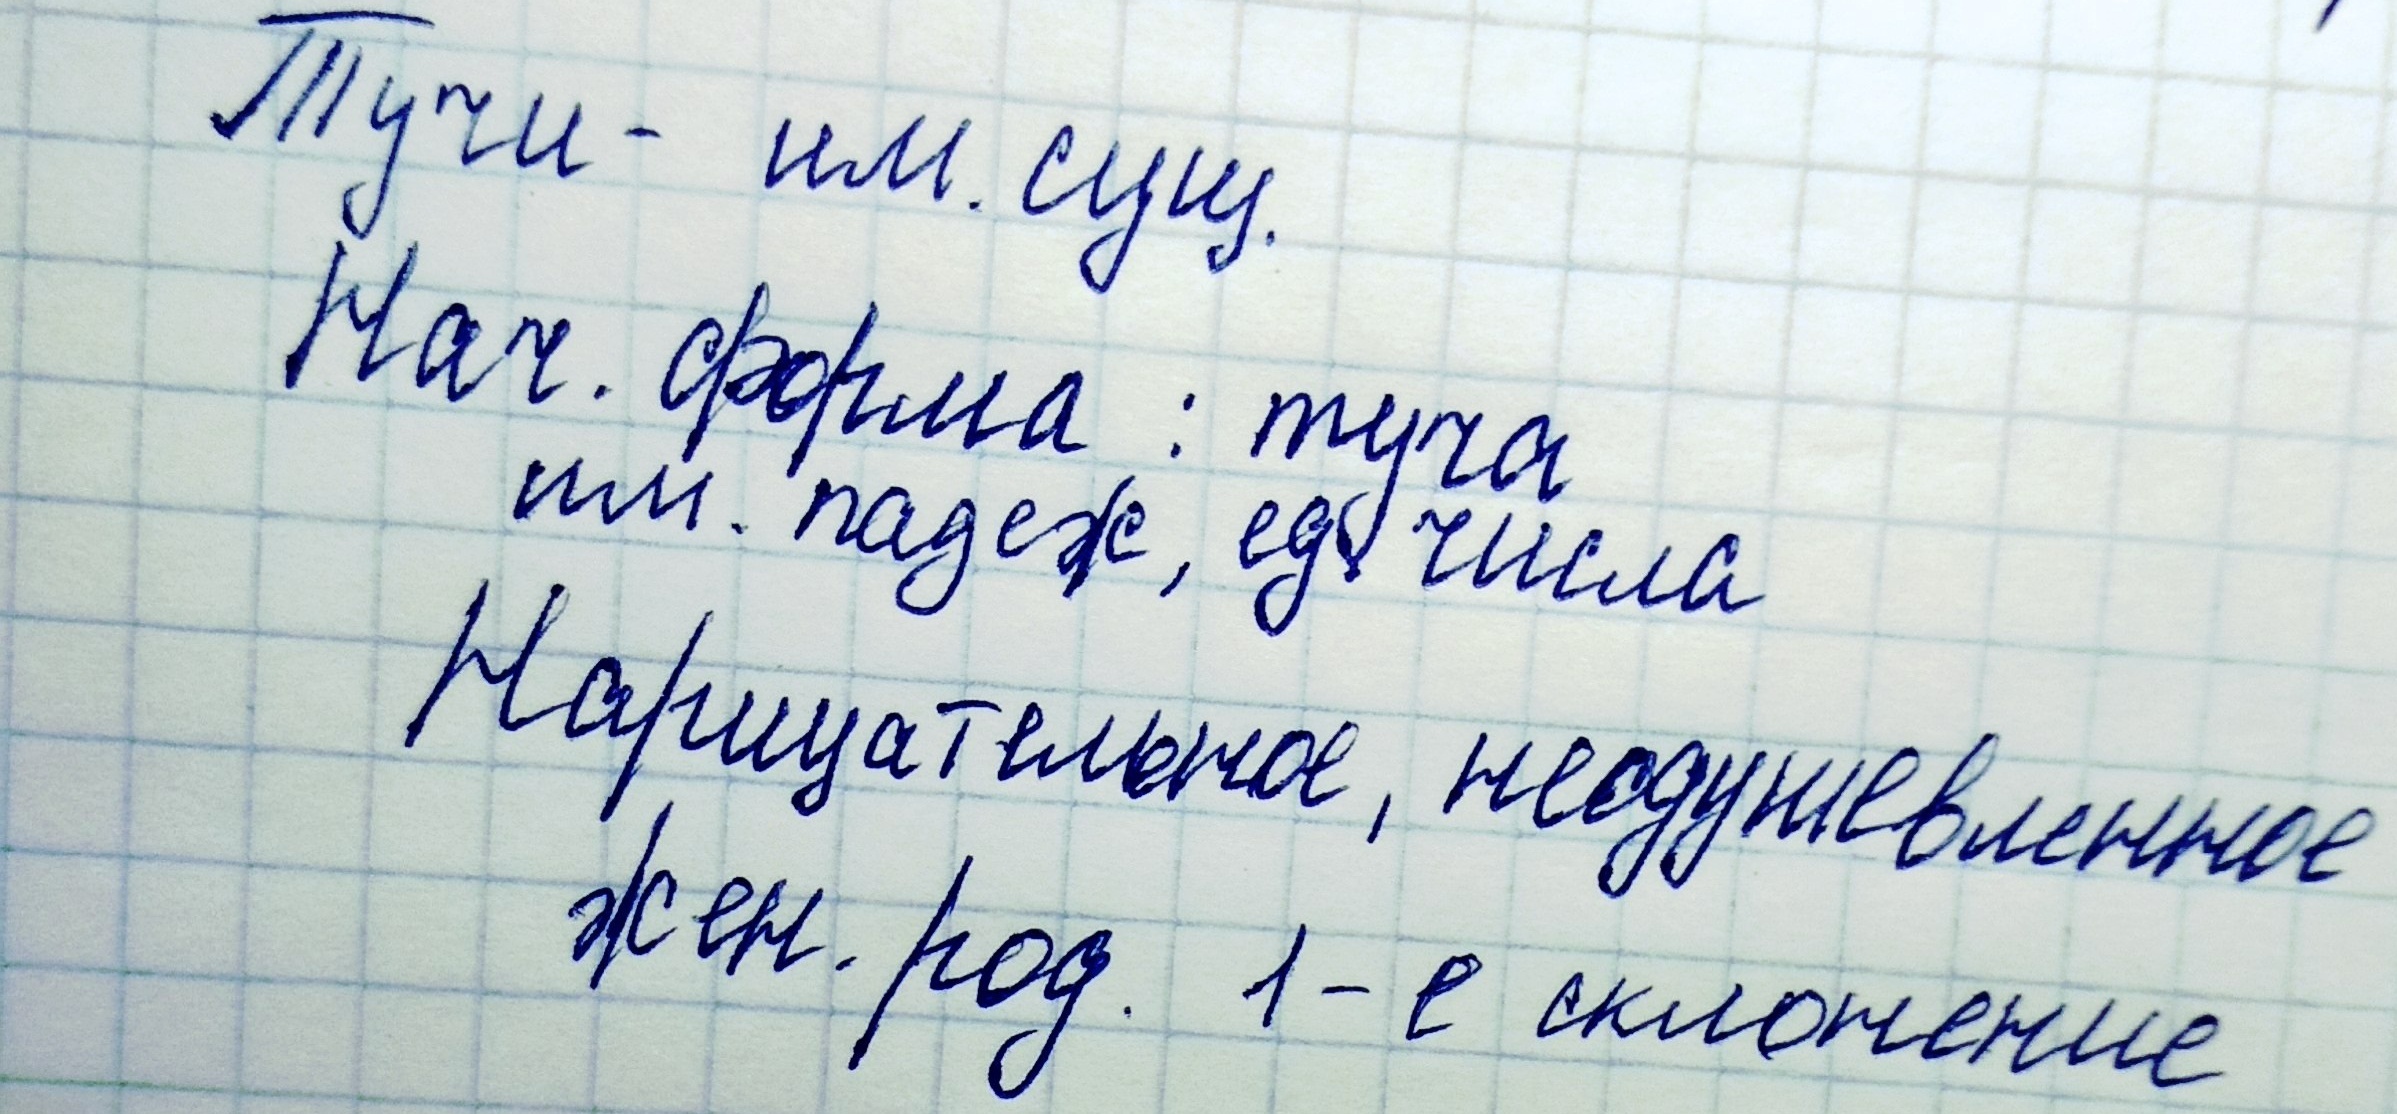 Тучи - им. сущ.
Нач. форма : туча
им. падеж, ед. числа
Нарицательное, неодушевленное
жен. род. 1-е склонение